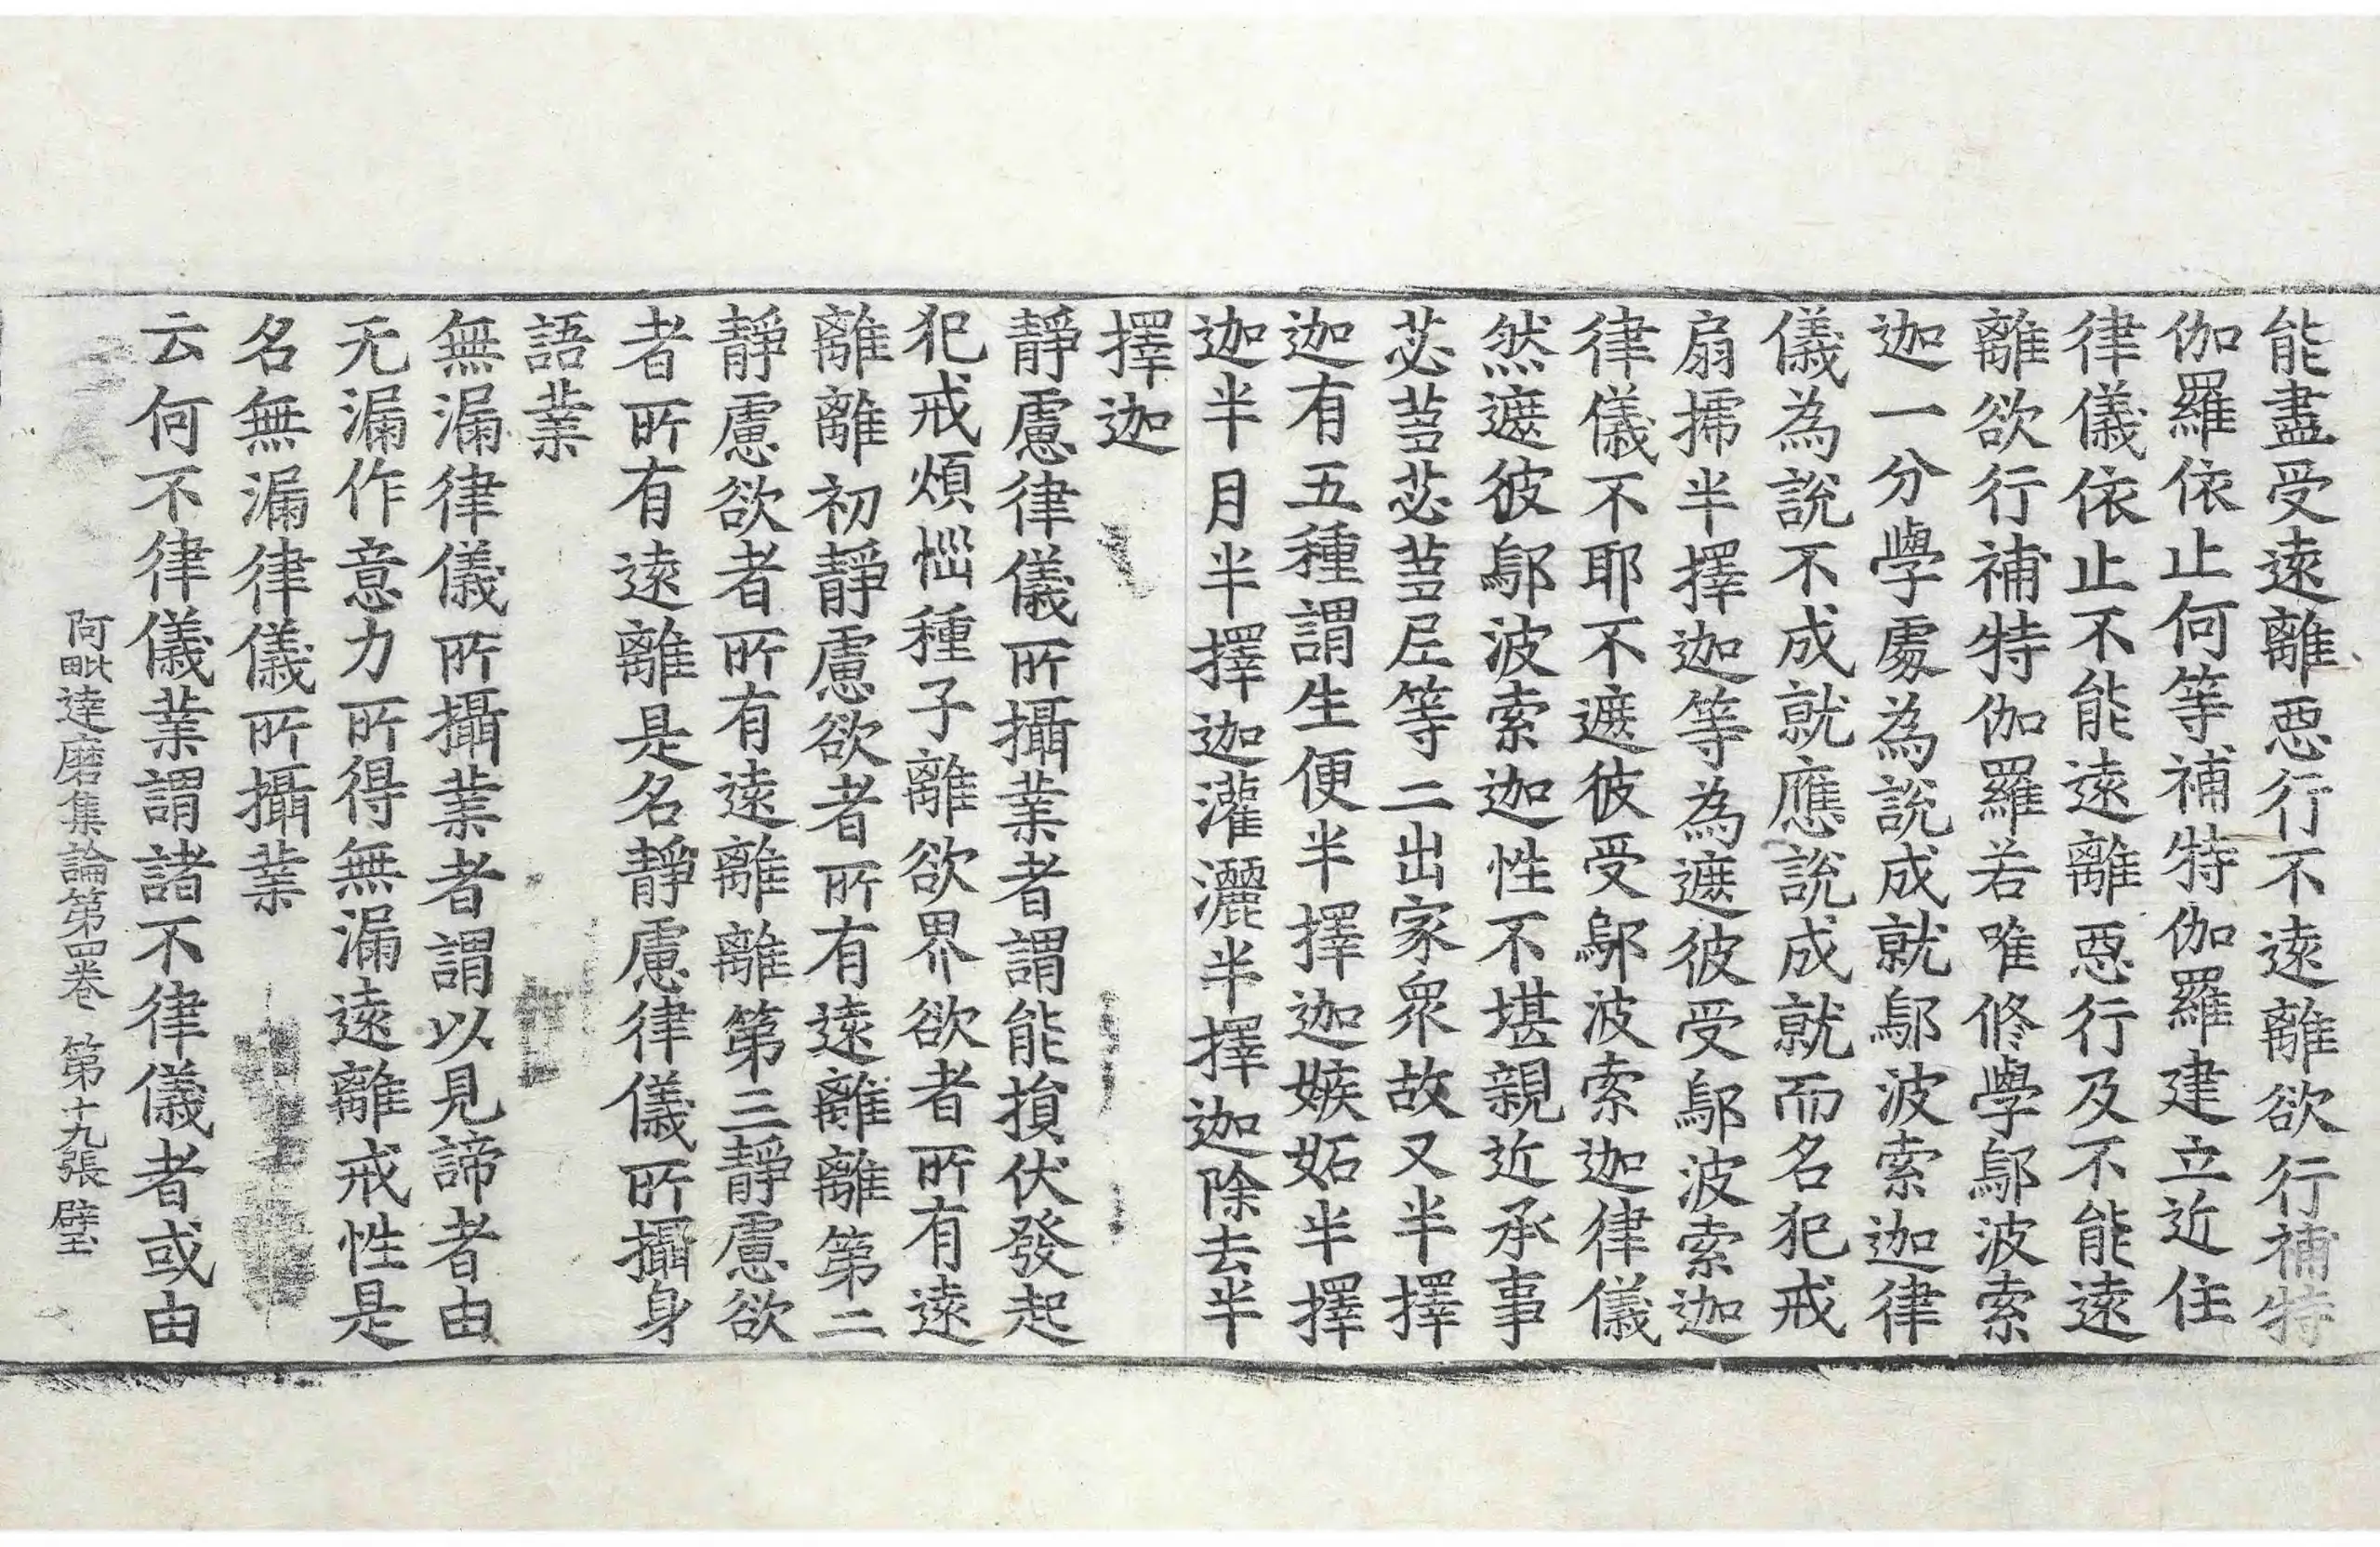 能盡受遠離惡行不遠離欲行補特
伽羅依止何等補特伽羅建立近住
律儀依止不能遠離惡行及不能遠
離欲行補特伽羅若唯修學鄔波索
迦一分學處為說成就鄔波索迦律
儀為說不成就應說成就而名犯戒
扇搋半擇迦等為遮彼受鄔波索迦
律儀不耶不遮彼受鄔波索迦律儀
然遮彼鄔波索迦性不堪親近承事
苾蒭苾蒭尼等二出家衆故又半擇
迦有五種謂生便半擇迦嫉妬半擇
迦半月半擇迦灌灑半擇迦除去半
擇迦
靜慮律儀所攝業者謂能損伏發起
犯戒煩惱種子離欲界欲者所有遠
離離初靜慮欲者所有遠離離第二
靜慮欲者所有遠離離第三靜慮欲
者所有遠離是名靜慮律儀所攝身
語業
無漏律儀所攝業者謂以見諦者由
无漏作意力所得無漏遠離戒性是
名無漏律儀所攝業
云何不律儀業謂諸不律儀者或由
阿毗達磨集論第四卷 第十九張 壁